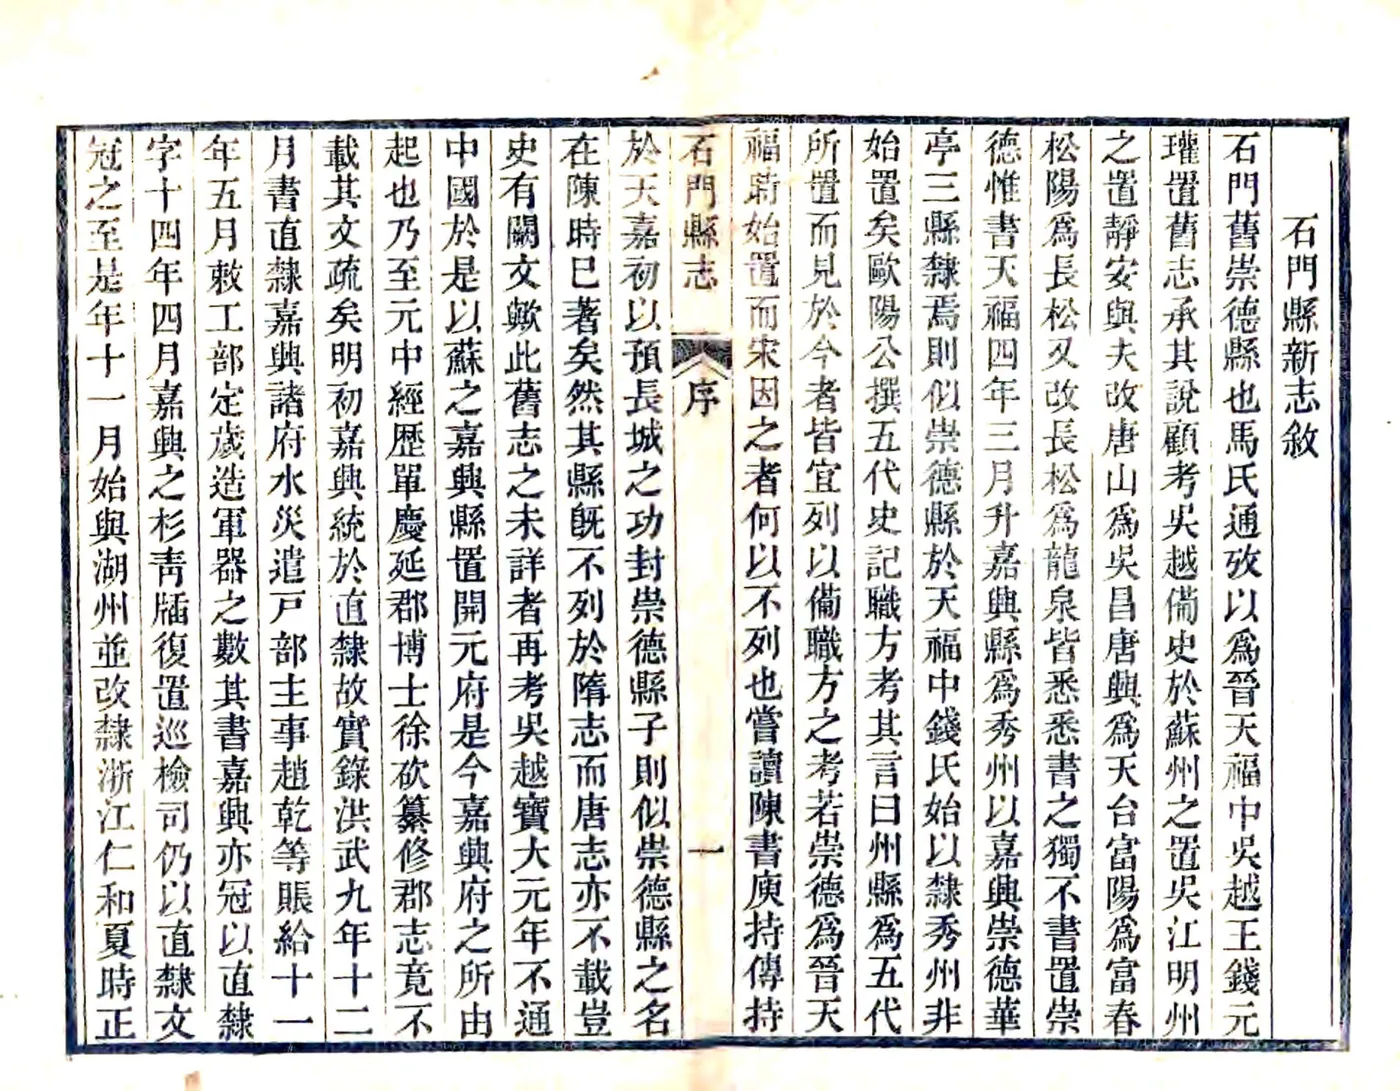 石門縣新志敘
石門舊崇德縣也馬氏通攷以爲晉天福中吳越王錢元
瓘置舊志承其說顧考吳越備史於蘇州之置吳江明州
之置靜安與夫改唐山爲吳昌唐興爲天台富陽爲富春
松陽爲長松又改長松爲龍泉皆悉悉書之獨不書置崇
德惟書天福四年三月升嘉興縣爲秀州以嘉興崇德華
亭三縣隸焉則似崇德縣於天福中錢氏始以隸秀州非
始置矣歐陽公撰五代史記職方考其言曰州縣爲五代
所置而見於今者皆宜列以備職方之考若崇德爲晉天
福時始置而宋因之者何以不列也嘗讀陳書庾持傳持
石門縣志 序 一
於天嘉初以預長城之功封崇德縣子則似崇德縣之名
在陳時已著矣然其縣旣不列於隋志而唐志亦不載豈
史有闕文歟此舊志之未詳者再考吳越寶大元年不通
中國於是以蘇之嘉興縣置開元府是今嘉興府之所由
起也乃至元中經歷單慶延郡博士徐砍纂修郡志竟不
載其文疏矣明初嘉興統於直隸故實錄洪武九年十二
月書直隸嘉興諸府水災遣戸部主事趙乾等賬給十一
年五月敕工部定歲造軍器之數其書嘉興亦冠以直隸
字十四年四月嘉興之杉靑牐復置巡檢司仍以直隸文
冠之至是年十一月始與湖州並改隸浙江仁和夏時正